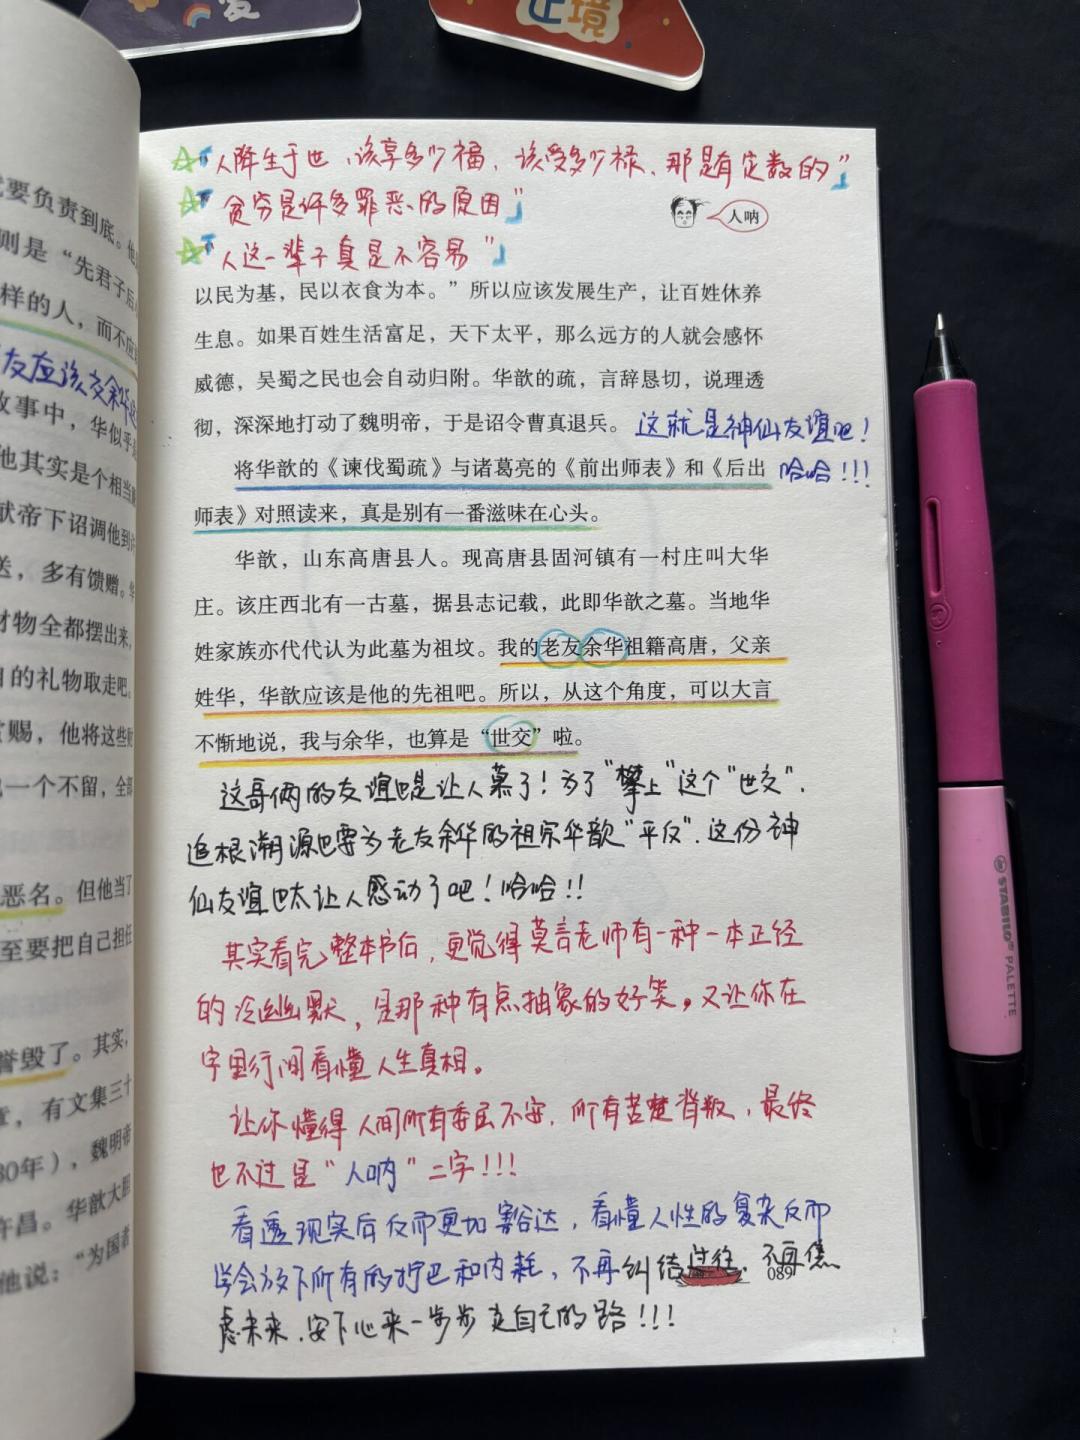 爱
止境
就要负责到底。他
则是“先君子后
样的人，而不应
友应该交余华这
故事中，华似乎
他其实是个相当
献帝下诏调他到
送，多有馈赠。华
财物全都摆出来，
自的礼物取走吧。
赏赐，他将这些
一个不留，全部
恶名。但他当了
至要把自己担任
誉毁了。其实，
章，有文集三十
30年），魏明帝
许昌。华歆大胆
他说：“为国者
☆『人降生于世，该享多少福，该受多少禄，那是有定数的』
☆『贫穷是许多罪恶的原因』
人呐
☆『人这一辈子真是不容易』
以民为基，民以衣食为本。”所以应该发展生产，让百姓休养
生息。如果百姓生活富足，天下太平，那么远方的人就会感怀
威德，吴蜀之民也会自动归附。华歆的疏，言辞恳切，说理透
彻，深深地打动了魏明帝，于是诏令曹真退兵。 这就是神仙友谊吧！
将华歆的《谏伐蜀疏》与诸葛亮的《前出师表》和《后出 哈哈！！！
师表》对照读来，真是别有一番滋味在心头。
华歆，山东高唐县人。现高唐县固河镇有一村庄叫大华
庄。该庄西北有一古墓，据县志记载，此即华歆之墓。当地华
姓家族亦代代认为此墓为祖坟。我的老友余华祖籍高唐，父亲
姓华，华歆应该是他的先祖吧。所以，从这个角度，可以大言
不惭地说，我与余华，也算是“世交”啦。
这哥俩的友谊也是让人慕了！为了“攀上”这个“世交”，
追根溯源也要为老友余华的祖宗华歆“平反”。这份神
仙友谊也太让人感动了吧！哈哈！！
其实看完整本书后，更觉得莫言老师有一种一本正经
的冷幽默，是那种有点抽象的好笑。又让你在
字里行间看懂人生真相。
让你懂得人间所有委屈不安，所有苦楚背叛，最终
也不过是“人呐”二字！！！
看透现实后反而更加豁达，看懂人性的复杂反而
学会放下所有的拧巴和内耗，不再纠结过往，不再焦
089
虑未来，安下心来一步步走自己的路！！！
STABILO® PALETTE